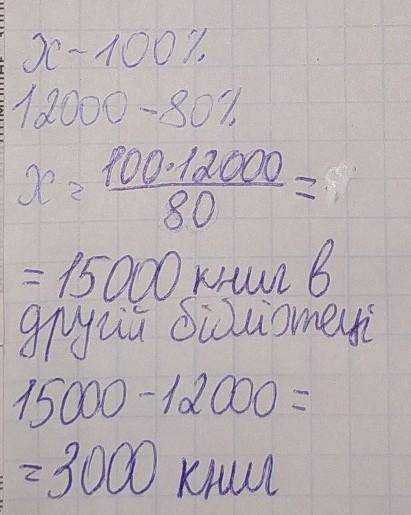 x - 100%
12000 - 80%
x = 100·12000 / 80 =
= 15000 книг в
другій бібліотеці
15000 - 12000 =
= 3000 книг